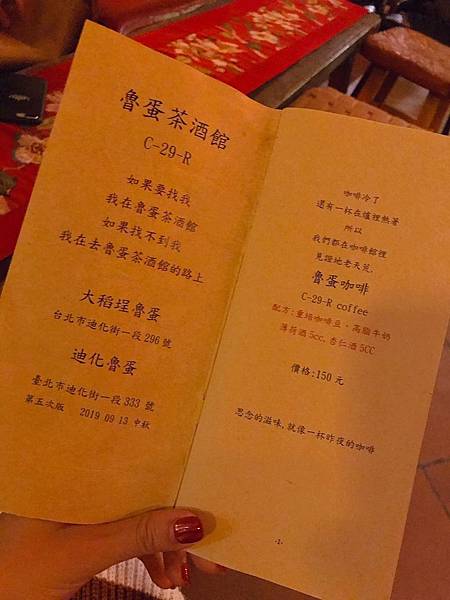 魯蛋茶酒館
C-29-R
如果要找我
我在魯蛋茶酒館
如果找不到我
我在去魯蛋茶酒館的路上
大稻埕魯蛋
台北市迪化街一段296號
迪化魯蛋
臺北市迪化街一段333號
第五次版 2019 09 13 中秋
咖啡冷了
還有一杯在爐裡熱著
所以
我們都在咖啡館裡
見證地老天荒.
魯蛋咖啡
C-29-R coffee
配方:重焙咖啡豆、高脂牛奶
薄荷酒5cc,杏仁酒5CC
價格:150元
思念的滋味,就像一杯昨夜的咖啡
-1-